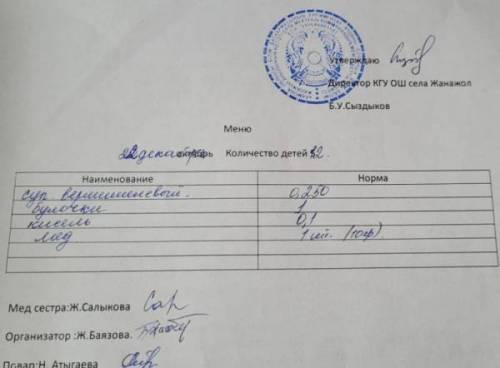 Утверждаю
Директор КГУ ОШ села Жанажол
Б.У.Сыздыков
Меню
22 декабрь Количество детей 12.
Наименование Норма
суп вермишелевый. 0,250
булочки 1
кисель 0,1
мёд 1 шт. (10гр)
Мед сестра:Ж.Салыкова
Организатор :Ж.Баязова.
Повар:Н. Атыгаева